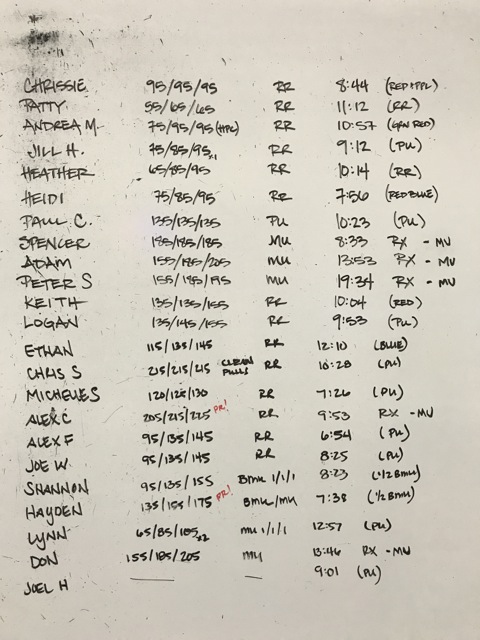 CHRISSIE 95/95/95 RR 8:44 (RED+PPL)
PATTY 55/65/65 RR 11:12 (RR)
ANDREA M. 75/95/95 (HPL) RR 10:57 (GRN RED)
JILL H. 75/85/95 x1 RR 9:12 (PU)
HEATHER 65/85/95 RR 10:14 (RR)
HEIDI 75/85/95 RR 7:56 (RED BLUE)
PAUL C. 135/135/135 PU 10:23 (PU)
SPENCER 185/185/185 MU 8:33 RX - MU
ADAM 155/185/205 MU 13:53 RX - MU
PETER S 155/185/195 MU 19:34 RX - MU
KEITH 135/135/155 RR 10:04 (RED)
LOGAN 135/145/155 RR 9:53 (PU)
ETHAN 115/135/145 RR 12:10 (BLUE)
CHRIS S 215/215/215 CLEAN PULLS RR 10:28 (PU)
MICHELE S 120/125/130 RR 7:26 (PU)
ALEX C 205/215/225 PR! RR 9:53 RX - MU
ALEX F 95/135/145 RR 6:54 (PU)
JOE W. 95/135/145 RR 8:25 (PU)
SHANNON 95/135/155 BMU 1/1/1 8:23 (1/2 BMU)
HAYDEN 135/155/175 PR! BMU/MU 7:38 (1/2 BMU)
LYNN 65/85/105 x2 MU 1/1/1 12:57 (PU)
DON 155/185/205 MU 13:46 RX - MU
JOEL H 9:01 (PU)